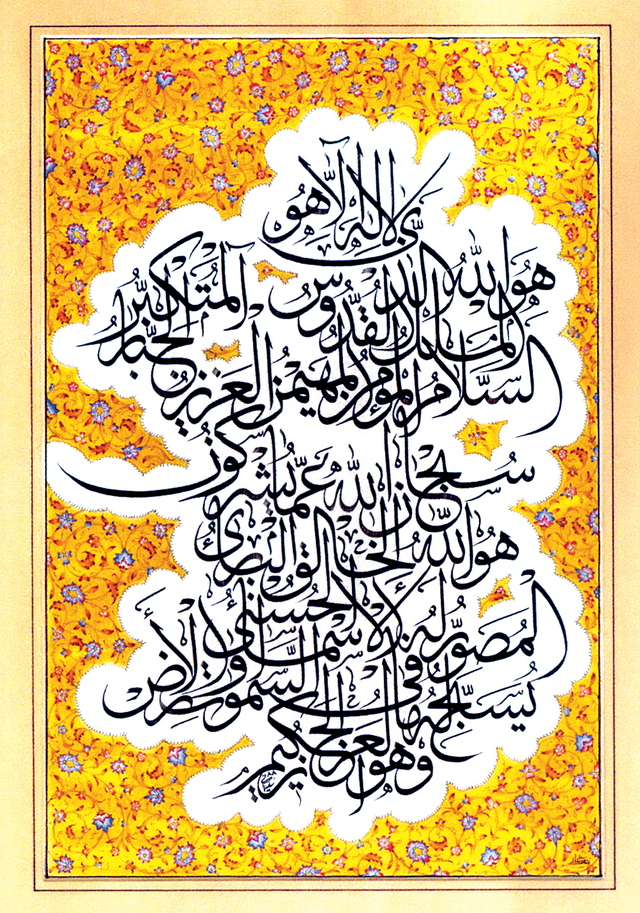 هُوَ اللّٰهُ الَّذِی لا اِلٰهَ اِلَّا هُوَ
الْمَلِكُ الْقُدُّوسُ
السَّلَامُ الْمُؤْمِنُ الْمُهَیْمِنُ الْعَزِیزُ الْجَبَّارُ الْمُتَكَبِّرُ
سُبْحَانَ اللّٰهِ عَمَّا یُشْرِكُونَ
هُوَ اللّٰهُ الْخَالِقُ الْبَارِئُ
الْمُصَوِّرُ لَهُ الْاَسْمَاءُ الْحُسْنٰی
یُسَبِّحُ لَهُ مَا فِی السَّمٰوٰتِ وَالْاَرْضِ
وَهُوَ الْعَزِیزُ الْحَكِیمُ